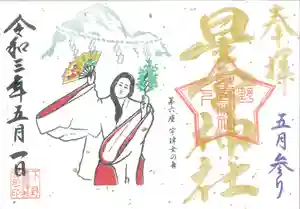 奉拝
星宮神社
五月参り
第六座 宇津女の舞
令和三年五月一日